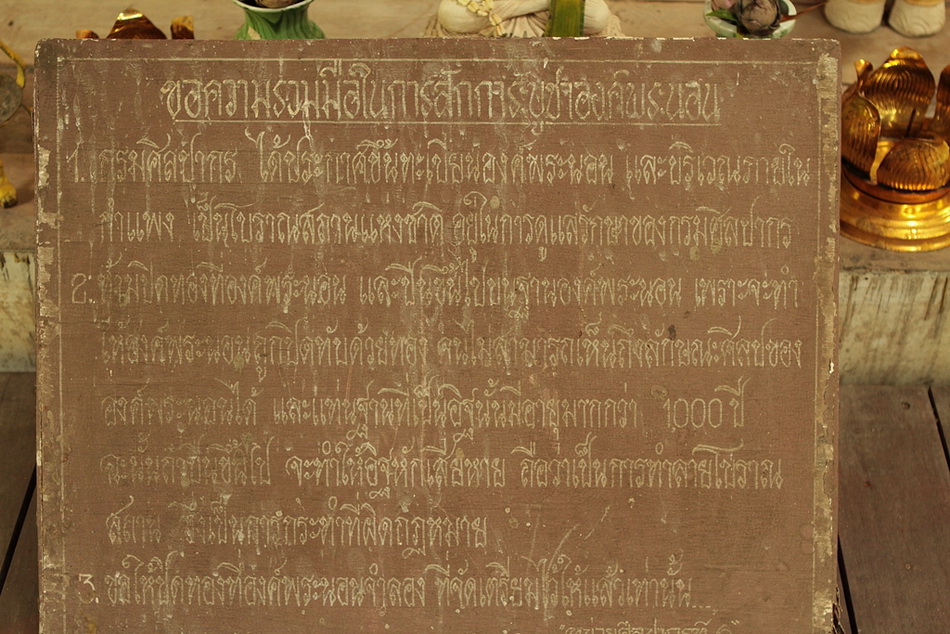 ขอความร่วมมือในการสักการะบูชาองค์พระนอน
1. กรมศิลปากร ได้ประกาศขึ้นทะเบียนองค์พระนอน และบริเวณภายใน
กำแพง เป็นโบราณสถานแห่งชาติ อยู่ในการดูแลรักษาของกรมศิลปากร
2. ห้ามปิดทองที่องค์พระนอน และปีนขึ้นไปบนฐานองค์พระนอน เพราะจะทำ
ให้องค์พระนอนถูกปิดทับด้วยทอง จนไม่สามารถเห็นถึงลักษณะศิลปของ
องค์พระนอนได้ และแท่นฐานที่เป็นอิฐนั้นมีอายุมากกว่า 1,000 ปี
ฉะนั้นถ้าปีนขึ้นไป จะทำให้อิฐหักเสียหาย ถือว่าเป็นการทำลายโบราณ
สถาน ซึ่งเป็นการกระทำที่ผิดกฎหมาย
3. ขอให้ปิดทองที่องค์พระนอนจำลอง ที่จัดเตรียมไว้ให้แล้วเท่านั้น...